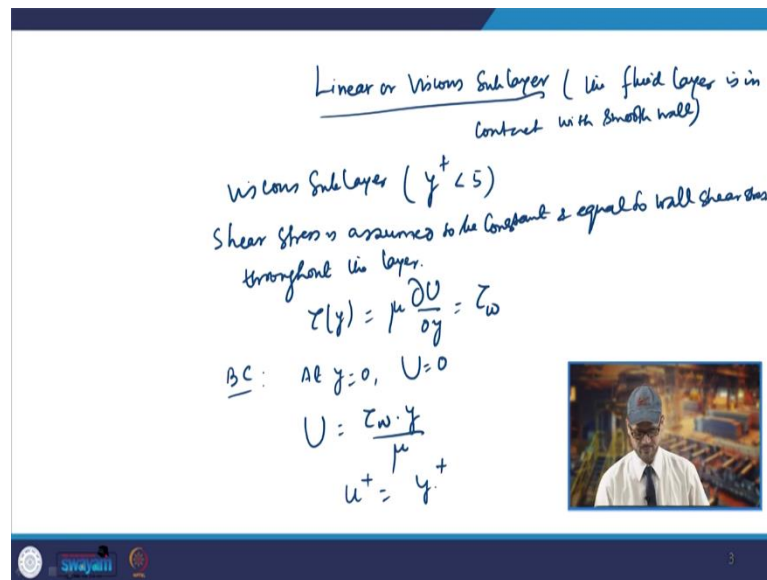 Linear or Viscous Sublayer ( the fluid layer is in
contact with smooth wall)
Viscous Sublayer ( y⁺ < 5)
Shear stress is assumed to be constant & equal to wall shear stress
throughout the layer.
τ(y) = μ ∂U/∂y = τw
BC : At y=0, U=0
U = τw·y/μ
u⁺ = y⁺
swayam
3